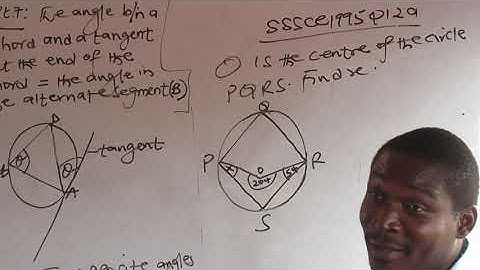 the angle b/n a
chord and a tangent
at the end of the
chord = the angle in
the alternate segment(B)
D
θ
θ
A
tangent
opposite angles
SSSCE 1995 Q12a
O IS the centre of the circle
PQRS. Find x.
Q
P
x
O
204
54
R
S